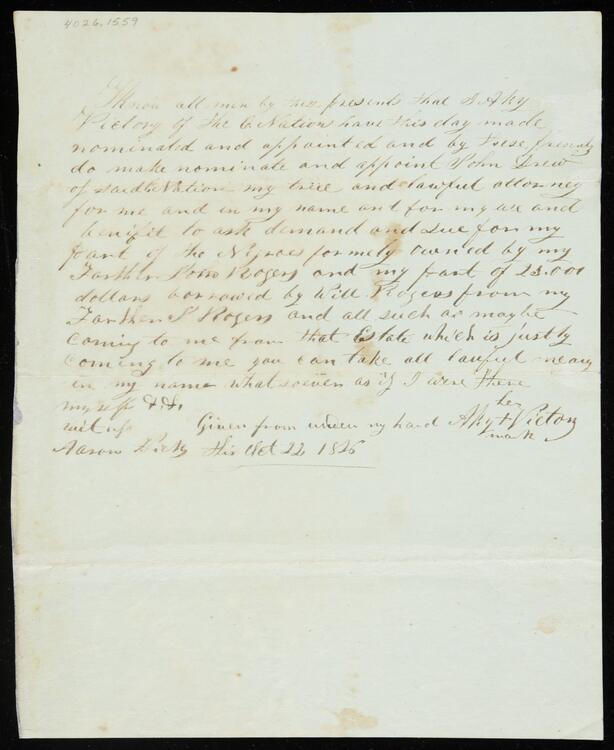 4026.1559
Know all men by these presents that I Aky
Victory of the C Nation have this day made
nominated and appointed and by these presents
do make nominate and appoint John Drew
of said Nation my true and lawful attorney
for me and in my name and for my use and
benifit to ask demand and sue for my
part of the Nigroes formely owned by my
Farther Rogers and my part of 23.000
dollars borrowed by Will Rogers from my
Farther Rogers and all such as maybe
coming to me from that Estate which is justly
coming to me you can take all lawful means
in my name whatsoever as if I were there
myself &.&.
witness Given from under my hand Aky + Victory
her
mark
Aaron this Oct 22 1826